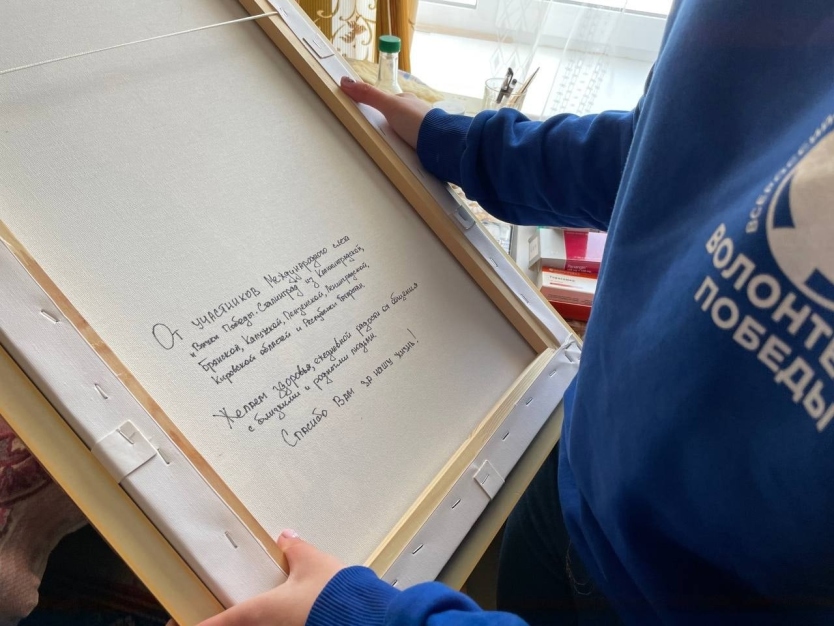 От участников Международного слета
"Вахты Победы. Сталинград" из Калининградской,
Брянской, Калужской, Пензенской, Ленинградской,
Кировской областей и Республики
Желаем здоровья, ежедневной радости от общения
с близкими и родными людьми!
Спасибо Вам за нашу жизнь!
ВСЕРОССИЙ
ВОЛОНТЕ
ПОБЕДЫ